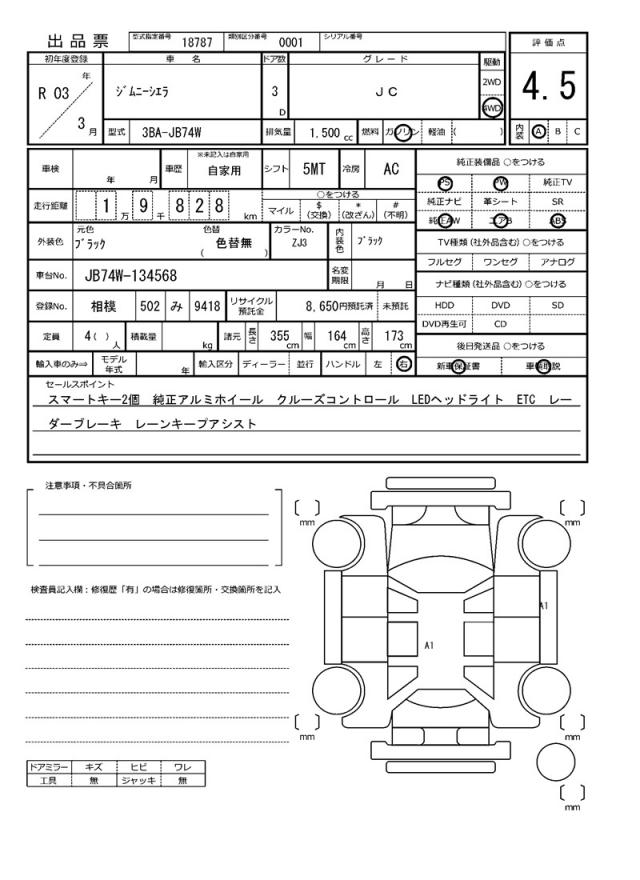 出品票 型式指定番号 18787 類別区分番号 0001 シリアル番号
評価点
4.5
内装 A B C
初年度登録 車名 ドア数 グレード 駆動
R 03 年 3 月 ジムニーシエラ 3 D JC 2WD 4WD
型式 3BA-JB74W 排気量 1.500 cc 燃料 ガソリン 軽油 ( )
車検 年 月 車歴 ※未記入は自家用 自家用 シフト 5MT 冷房 AC
走行距離 1 万 9 千 828 km ○をつける マイル $ (交換) * (改ざん) # (不明)
外装色 元色 ブラック 色替 色替無 ( ) カラーNo. ZJ3 内装色 ブラック
車台No. JB74W-134568 名変期限 月 日
登録No. 相模 502 み 9418 リサイクル預託金 8,650円預託済 未預託
定員 4( ) 人 積載量 kg 諸元 長さ 355 cm 幅 164 cm 高さ 173 cm
輸入車のみ⇒ モデル年式 年 輸入区分 ディーラー 並行 ハンドル 左 右
純正装備品 ○をつける
PS PW 純正TV
純正ナビ 革シート SR
純正AW エアB ABS
TV種類 (社外品含む) ○をつける
フルセグ ワンセグ アナログ
ナビ種類 (社外品含む) ○をつける
HDD DVD SD
DVD再生可 CD
後日発送品 ○をつける
新車保証書 車輌取説
セールスポイント
スマートキー2個 純正アルミホイール クルーズコントロール LEDヘッドライト ETC レー
ダーブレーキ レーンキープアシスト
注意事項・不具合箇所
検査員記入欄：修復歴「有」の場合は修復箇所・交換箇所を記入
ドアミラー キズ ヒビ ワレ
工具 無 ジャッキ 無
mm
mm
A1
A1
mm
mm
mm